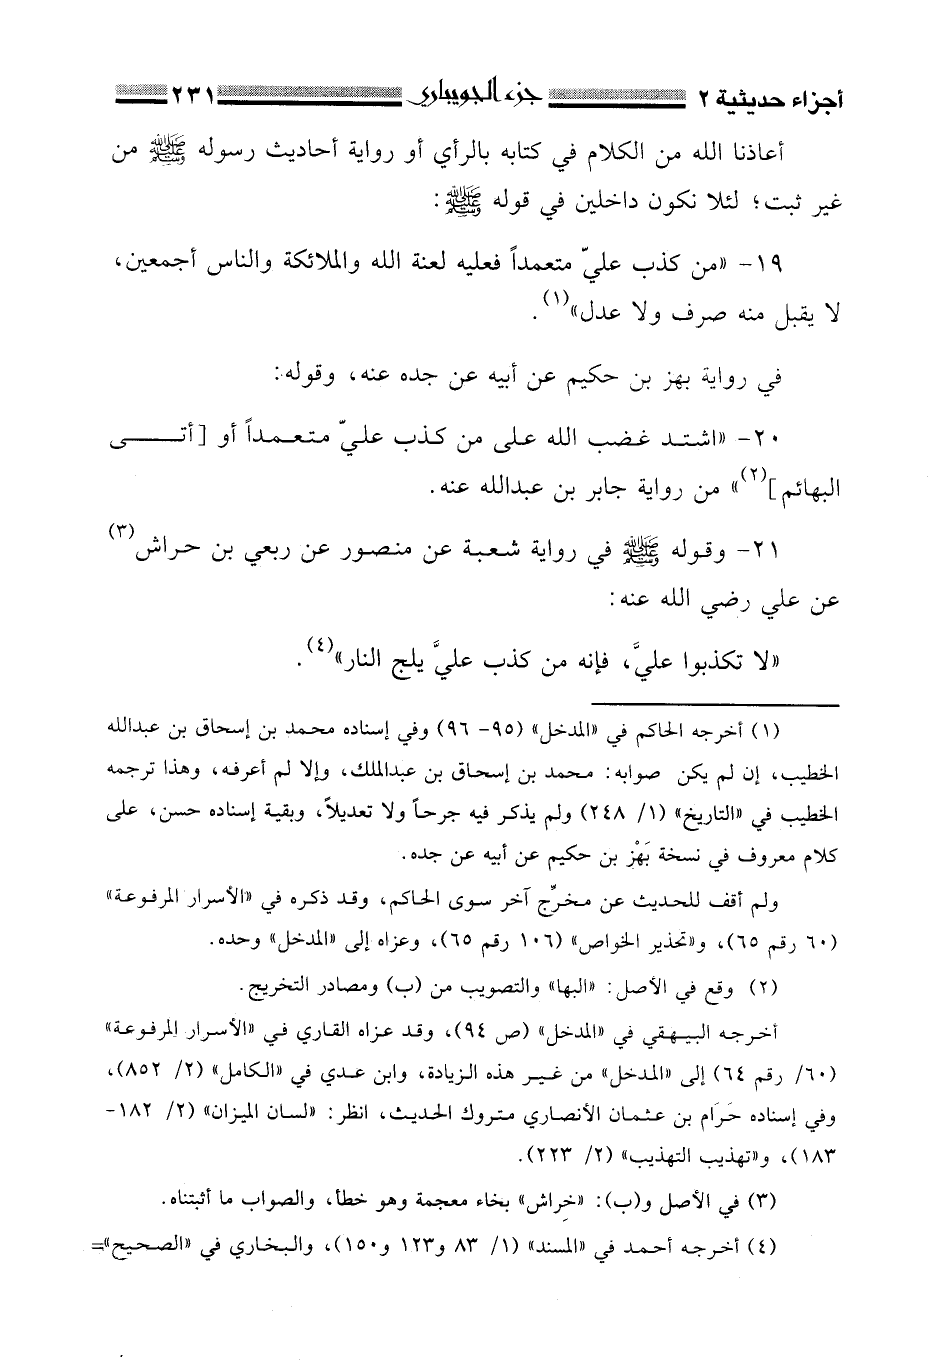 أجزاء حديثية ٢ جزء الجويباري ٢٣١
أعاذنا الله من الكلام في كتابه بالرأي أو رواية أحاديث رسوله ﷺ من
غير ثبت؛ لئلا نكون داخلين في قوله ﷺ:
١٩- «من كذب عليّ متعمداً فعليه لعنة الله والملائكة والناس أجمعين،
لا يقبل منه صرف ولا عدل»(١).
في رواية بهز بن حكيم عن أبيه عن جده عنه، وقوله:
٢٠- «اشتد غضب الله على من كذب عليّ متعمداً أو [أتى
البهائم](٢)» من رواية جابر بن عبدالله عنه.
٢١- وقوله ﷺ في رواية شعبة عن منصور عن ربعي بن حراش(٣)
عن علي رضي الله عنه:
«لا تكذبوا عليَّ، فإنه من كذب عليَّ يلج النار»(٤).
(١) أخرجه الحاكم في «المدخل» (٩٥- ٩٦) وفي إسناده محمد بن إسحاق بن عبدالله
الخطيب، إن لم يكن صوابه: محمد بن إسحاق بن عبدالملك، وإلا لم أعرفه، وهذا ترجمه
الخطيب في «التاريخ» (١/ ٢٤٨) ولم يذكر فيه جرحاً ولا تعديلاً، وبقية إسناده حسن، على
كلام معروف في نسخة بَهْز بن حكيم عن أبيه عن جده.
ولم أقف للحديث عن مخرِّج آخر سوى الحاكم، وقد ذكره في «الأسرار المرفوعة»
(٦٠ رقم ٦٥)، و«تحذير الخواص» (١٠٦ رقم ٦٥)، وعزاه إلى «المدخل» وحده.
(٢) وقع في الأصل: «البها» والتصويب من (ب) ومصادر التخريج.
أخرجه البيهقي في «المدخل» (ص ٩٤)، وقد عزاه القاري في «الأسرار المرفوعة»
(٦٠/ رقم ٦٤) إلى «المدخل» من غير هذه الزيادة، وابن عدي في «الكامل» (٢/ ٨٥٢)،
وفي إسناده حَرَام بن عثمان الأنصاري متروك الحديث، انظر: «لسان الميزان» (٢/ ١٨٢-
١٨٣)، و«تهذيب التهذيب» (٢/ ٢٢٣).
(٣) في الأصل و(ب): «خِراش» بخاء معجمة وهو خطأ، والصواب ما أثبتناه.
(٤) أخرجه أحمد في «المسند» (١/ ٨٣ و١٢٣ و١٥٠)، والبخاري في «الصحيح»=